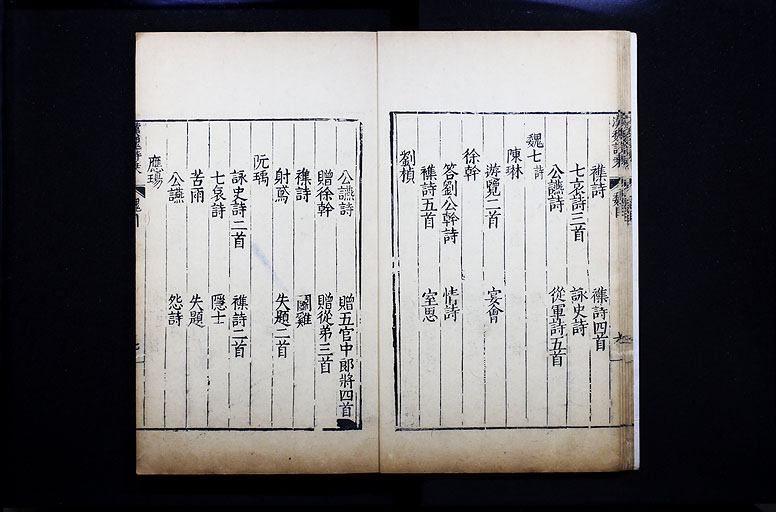 襍詩 襍詩四首
七哀詩三首 詠史詩
公讌詩 從軍詩五首
魏七詩
陳琳
游覽二首 宴會
徐幹
答劉公幹詩 情詩
襍詩五首 室思
劉楨
公讌詩 贈五官中郎將四首
贈徐幹 贈從弟三首
襍詩 鬭雞
射鳶 失題二首
阮瑀
詠史詩二首 襍詩二首
七哀詩 隱士
苦雨 失題
公讌 怨詩
應瑒